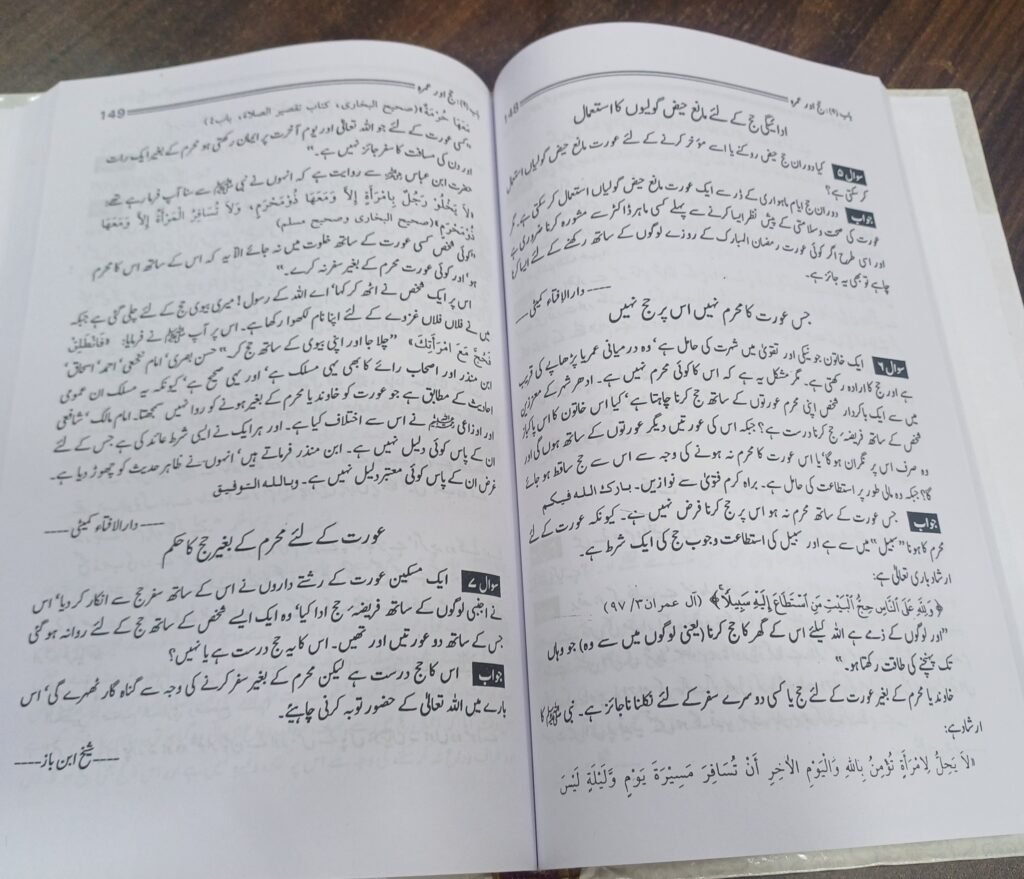 باب (۹): حج اور عمرہ
148
ادائیگی حج کے لئے مانع حیض گولیوں کا استعمال
سوال ۵ کیا دوران حج حیض روکنے یا اسے مؤخر کرنے کے لئے عورت مانع حیض گولیاں استعمال
کر سکتی ہے؟
جواب دوران حج ایام ماہواری کے ڈر سے ایک عورت مانع حیض گولیاں استعمال کر سکتی ہے۔ مگر
عورت کی صحت و سلامتی کے پیش نظر ایسا کرنے سے پہلے کسی ماہر ڈاکٹر سے مشورہ کرنا ضروری ہے
اور اسی طرح اگر کوئی عورت رمضان المبارک کے روزے لوگوں کے ساتھ رکھنے کے لئے ایسا کرنا
چاہے تو بھی یہ جائز ہے۔
ــــ دارالافتاء کمیٹی ــــ
جس عورت کا محرم نہیں اس پر حج نہیں
سوال ۶ ایک خاتون جو نیکی اور تقویٰ میں شہرت کی حامل ہے' وہ درمیانی عمر یا بڑھاپے کی قریب
ہے اور حج کا ارادہ رکھتی ہے۔ مگر مشکل یہ ہے کہ اس کا کوئی محرم نہیں ہے۔ ادھر شہر کے معززین
میں سے ایک باکردار شخص اپنی محرم عورتوں کے ساتھ حج کرنا چاہتا ہے' کیا اس خاتون کا اس پاکباز
شخص کے ساتھ فریضہ حج کرنا درست ہے؟ جبکہ اس کی عورتیں دیگر عورتوں کے ساتھ ہوں گی اور
وہ صرف اس پر نگران ہو گا' یا اس عورت کا محرم نہ ہونے کی وجہ سے اس سے حج ساقط ہو جائے
گا؟ جبکہ وہ مالی طور پر استطاعت کی حامل ہے۔ براہ کرم فتویٰ سے نوازیں۔ بارک اللہ فیکم
جواب جس عورت کے ساتھ محرم نہ ہو اس پر حج کرنا فرض نہیں ہے۔ کیونکہ عورت کے لئے
محرم کا ہونا "سبیل" میں سے ہے اور سبیل کی استطاعت وجوب حج کی ایک شرط ہے۔
ارشاد باری تعالیٰ ہے:
﴿وَلِلَّهِ عَلَى ٱلنَّاسِ حِجُّ ٱلْبَيْتِ مَنِ ٱسْتَطَاعَ إِلَيْهِ سَبِيلًا﴾ (آل عمران ۳/ ۹۷)
"اور لوگوں کے ذے ہے اللہ کیلئے اس کے گھر کا حج کرنا (یعنی لوگوں میں سے وہ) جو وہاں
تک پہنچنے کی طاقت رکھتا ہو۔"
خاوند یا محرم کے بغیر عورت کے لئے حج یا کسی دوسرے سفر کے لئے نکلنا ناجائز ہے۔ نبی ﷺ کا
ارشاد ہے:
«لاَ يَحِلُّ لاِمْرَأَةٍ تُؤْمِنُ بِاللهِ وَالْيَوْمِ الآخِرِ أَنْ تُسَافِرَ مَسِيْرَةَ يَوْمٍ وَّلَيْلَةٍ لَيْسَ
باب (۹): حج اور عمرہ
149
مَعَهَا حُرْمَةٌ»(صحیح البخاری، کتاب تقصیر الصلاۃ، باب ٤)
"کسی عورت کے لئے جو اللہ تعالیٰ اور یوم آخرت پر ایمان رکھتی ہو محرم کے بغیر ایک رات
اور دن کی مسافت کا سفر جائز نہیں ہے۔"
حضرت ابن عباس سے روایت ہے کہ انہوں نے نبی ﷺ سے سنا آپ فرما رہے تھے:
«لاَ يَخْلُوَ رَجُلٌ بِامْرَأَةٍ إِلاَّ وَمَعَهَا ذُوْمَحْرَمٍ، وَلاَ تُسَافِرُ الْمَرْأَةُ إِلاَّ وَمَعَهَا
ذُوْمَحْرَمٍ»(صحیح البخاری وصحیح مسلم)
"کوئی شخص کسی عورت کے ساتھ خلوت میں نہ جائے الّا یہ کہ اس کے ساتھ اس کا محرم
ہو' اور کوئی عورت محرم کے بغیر سفر نہ کرے۔"
اس پر ایک شخص نے اٹھ کر کہا' اے اللہ کے رسول! میری بیوی حج کے لئے چلی گئی ہے جبکہ
میں نے فلاں فلاں غزوے کے لئے اپنا نام لکھوا رکھا ہے۔ اس پر آپ ﷺ نے فرمایا: «فَانْطَلِقْ
فَحُجَّ مَعَ امْرَأَتِكَ» "چلا جا اور اپنی بیوی کے ساتھ حج کر" حسن بصری' امام نخعی' احمد' اسحاق'
ابن منذر اور اصحاب رائے کا بھی یہی مسلک ہے' اور یہی صحیح ہے' کیونکہ یہ مسلک ان عمومی
احادیث کے مطابق ہے جو عورت کو خاوند یا محرم کے بغیر ہونے کو روا نہیں سمجھتا۔ امام مالک' شافعی
اور اوزاعی نے اس سے اختلاف کیا ہے۔ اور ہر ایک نے ایسی شرط عائد کی ہے جس کے لئے
ان کے پاس کوئی دلیل نہیں ہے۔ ابن منذر فرماتے ہیں' انہوں نے ظاہر حدیث کو چھوڑ دیا ہے۔
غرض ان کے پاس کوئی معتبر دلیل نہیں ہے۔ وباللہ التوفیق
ــــ دارالافتاء کمیٹی ــــ
عورت کے لئے محرم کے بغیر حج کا حکم
سوال ۷ ایک مسکین عورت کے رشتے داروں نے اس کے ساتھ سفر حج سے انکار کر دیا' اس
نے اجنبی لوگوں کے ساتھ فریضہ حج ادا کیا' وہ ایک ایسے شخص کے ساتھ حج کے لئے روانہ ہو گئی
جس کے ساتھ دو عورتیں اور تھیں۔ اس کا یہ حج درست ہے یا نہیں؟
جواب اس کا حج درست ہے لیکن محرم کے بغیر سفر کرنے کی وجہ سے گناہ گار ٹھہرے گی' اس
بارے میں اللہ تعالیٰ کے حضور توبہ کرنی چاہیئے۔
ــــ شیخ ابن باز ــــ